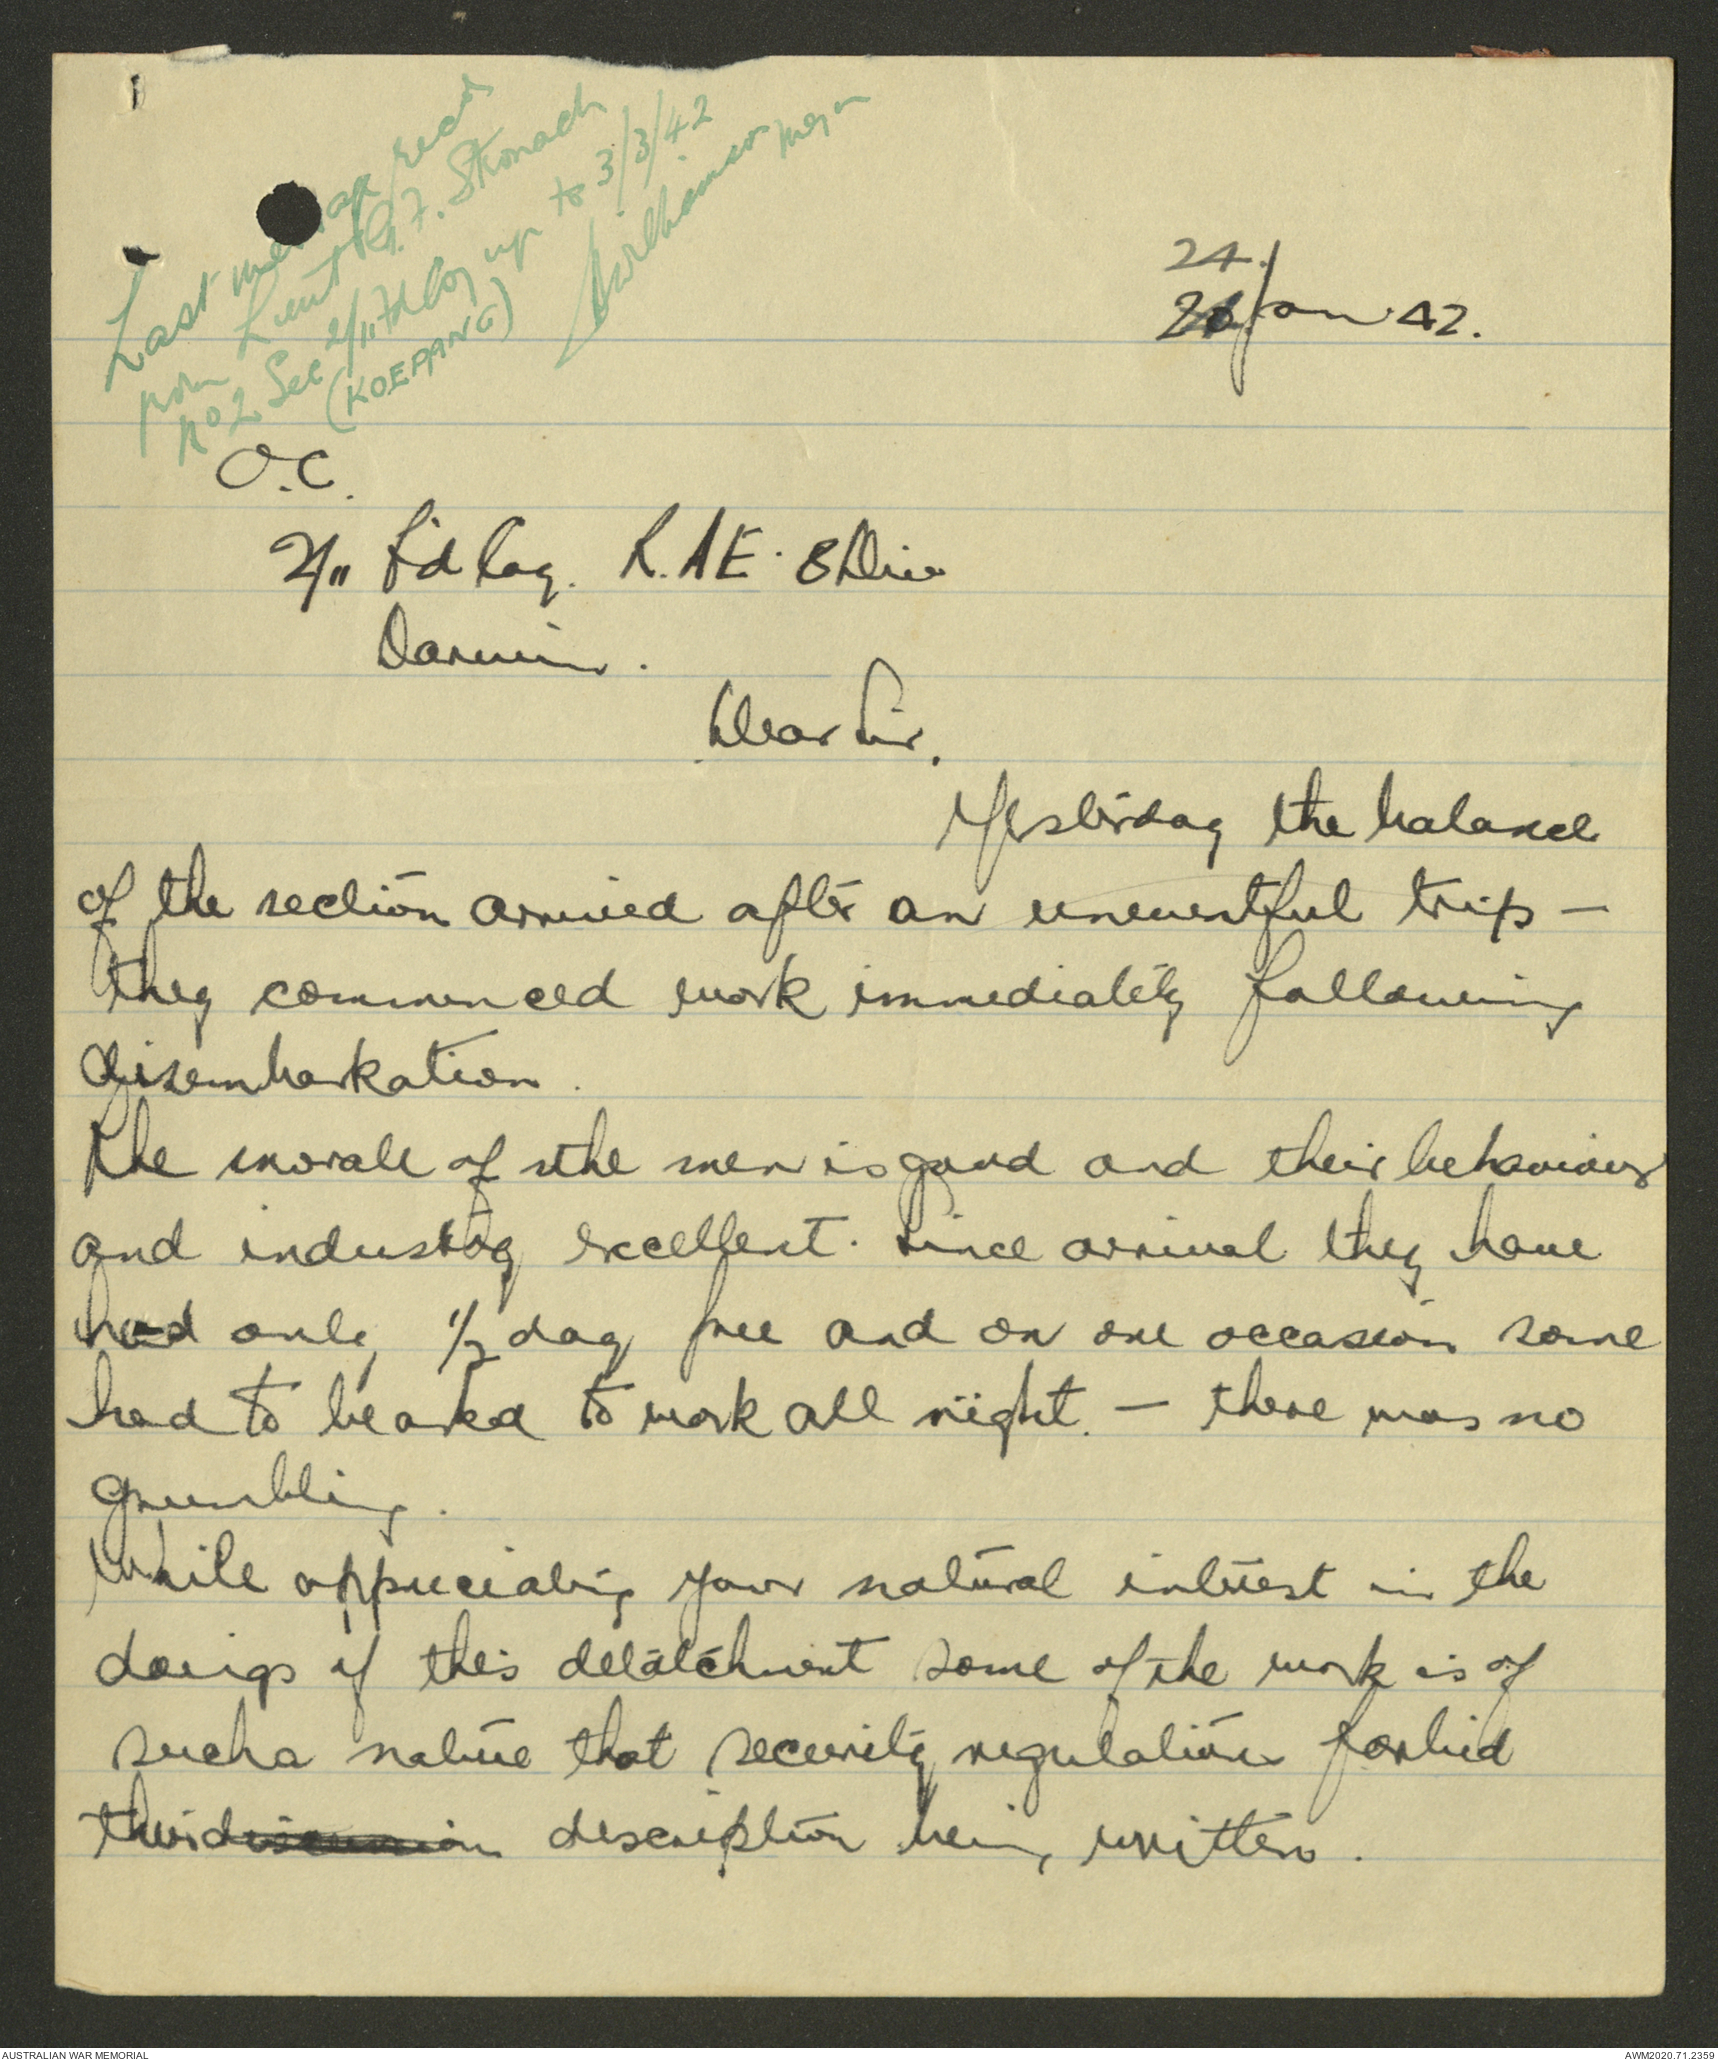 Last message recd
from Lieut G.F. Stronach
No 2 Sec 2/11 Fd Coy up to 3/3/42
(KOEPANG)
Williamson Major
24.
Jan 42.
O.C.
2/11 Fd Coy. R.A.E. 8 Div
Darwin.
Dear Sir,
Yesterday the balance
of the section arrived after an uneventful trip –
they commenced work immediately following
disembarkation.
The morale of the men is good and their behaviour
and industry excellent. Since arrival they have
had only 1/2 day free and on one occasion some
had to be asked to work all night. – there was no
grumbling.
While appreciating your natural interest in the
doings of this detatchment some of the work is of
such a nature that security regulations forbid
their discussion description being written.
AUSTRALIAN WAR MEMORIAL
AWM2020.71.2359